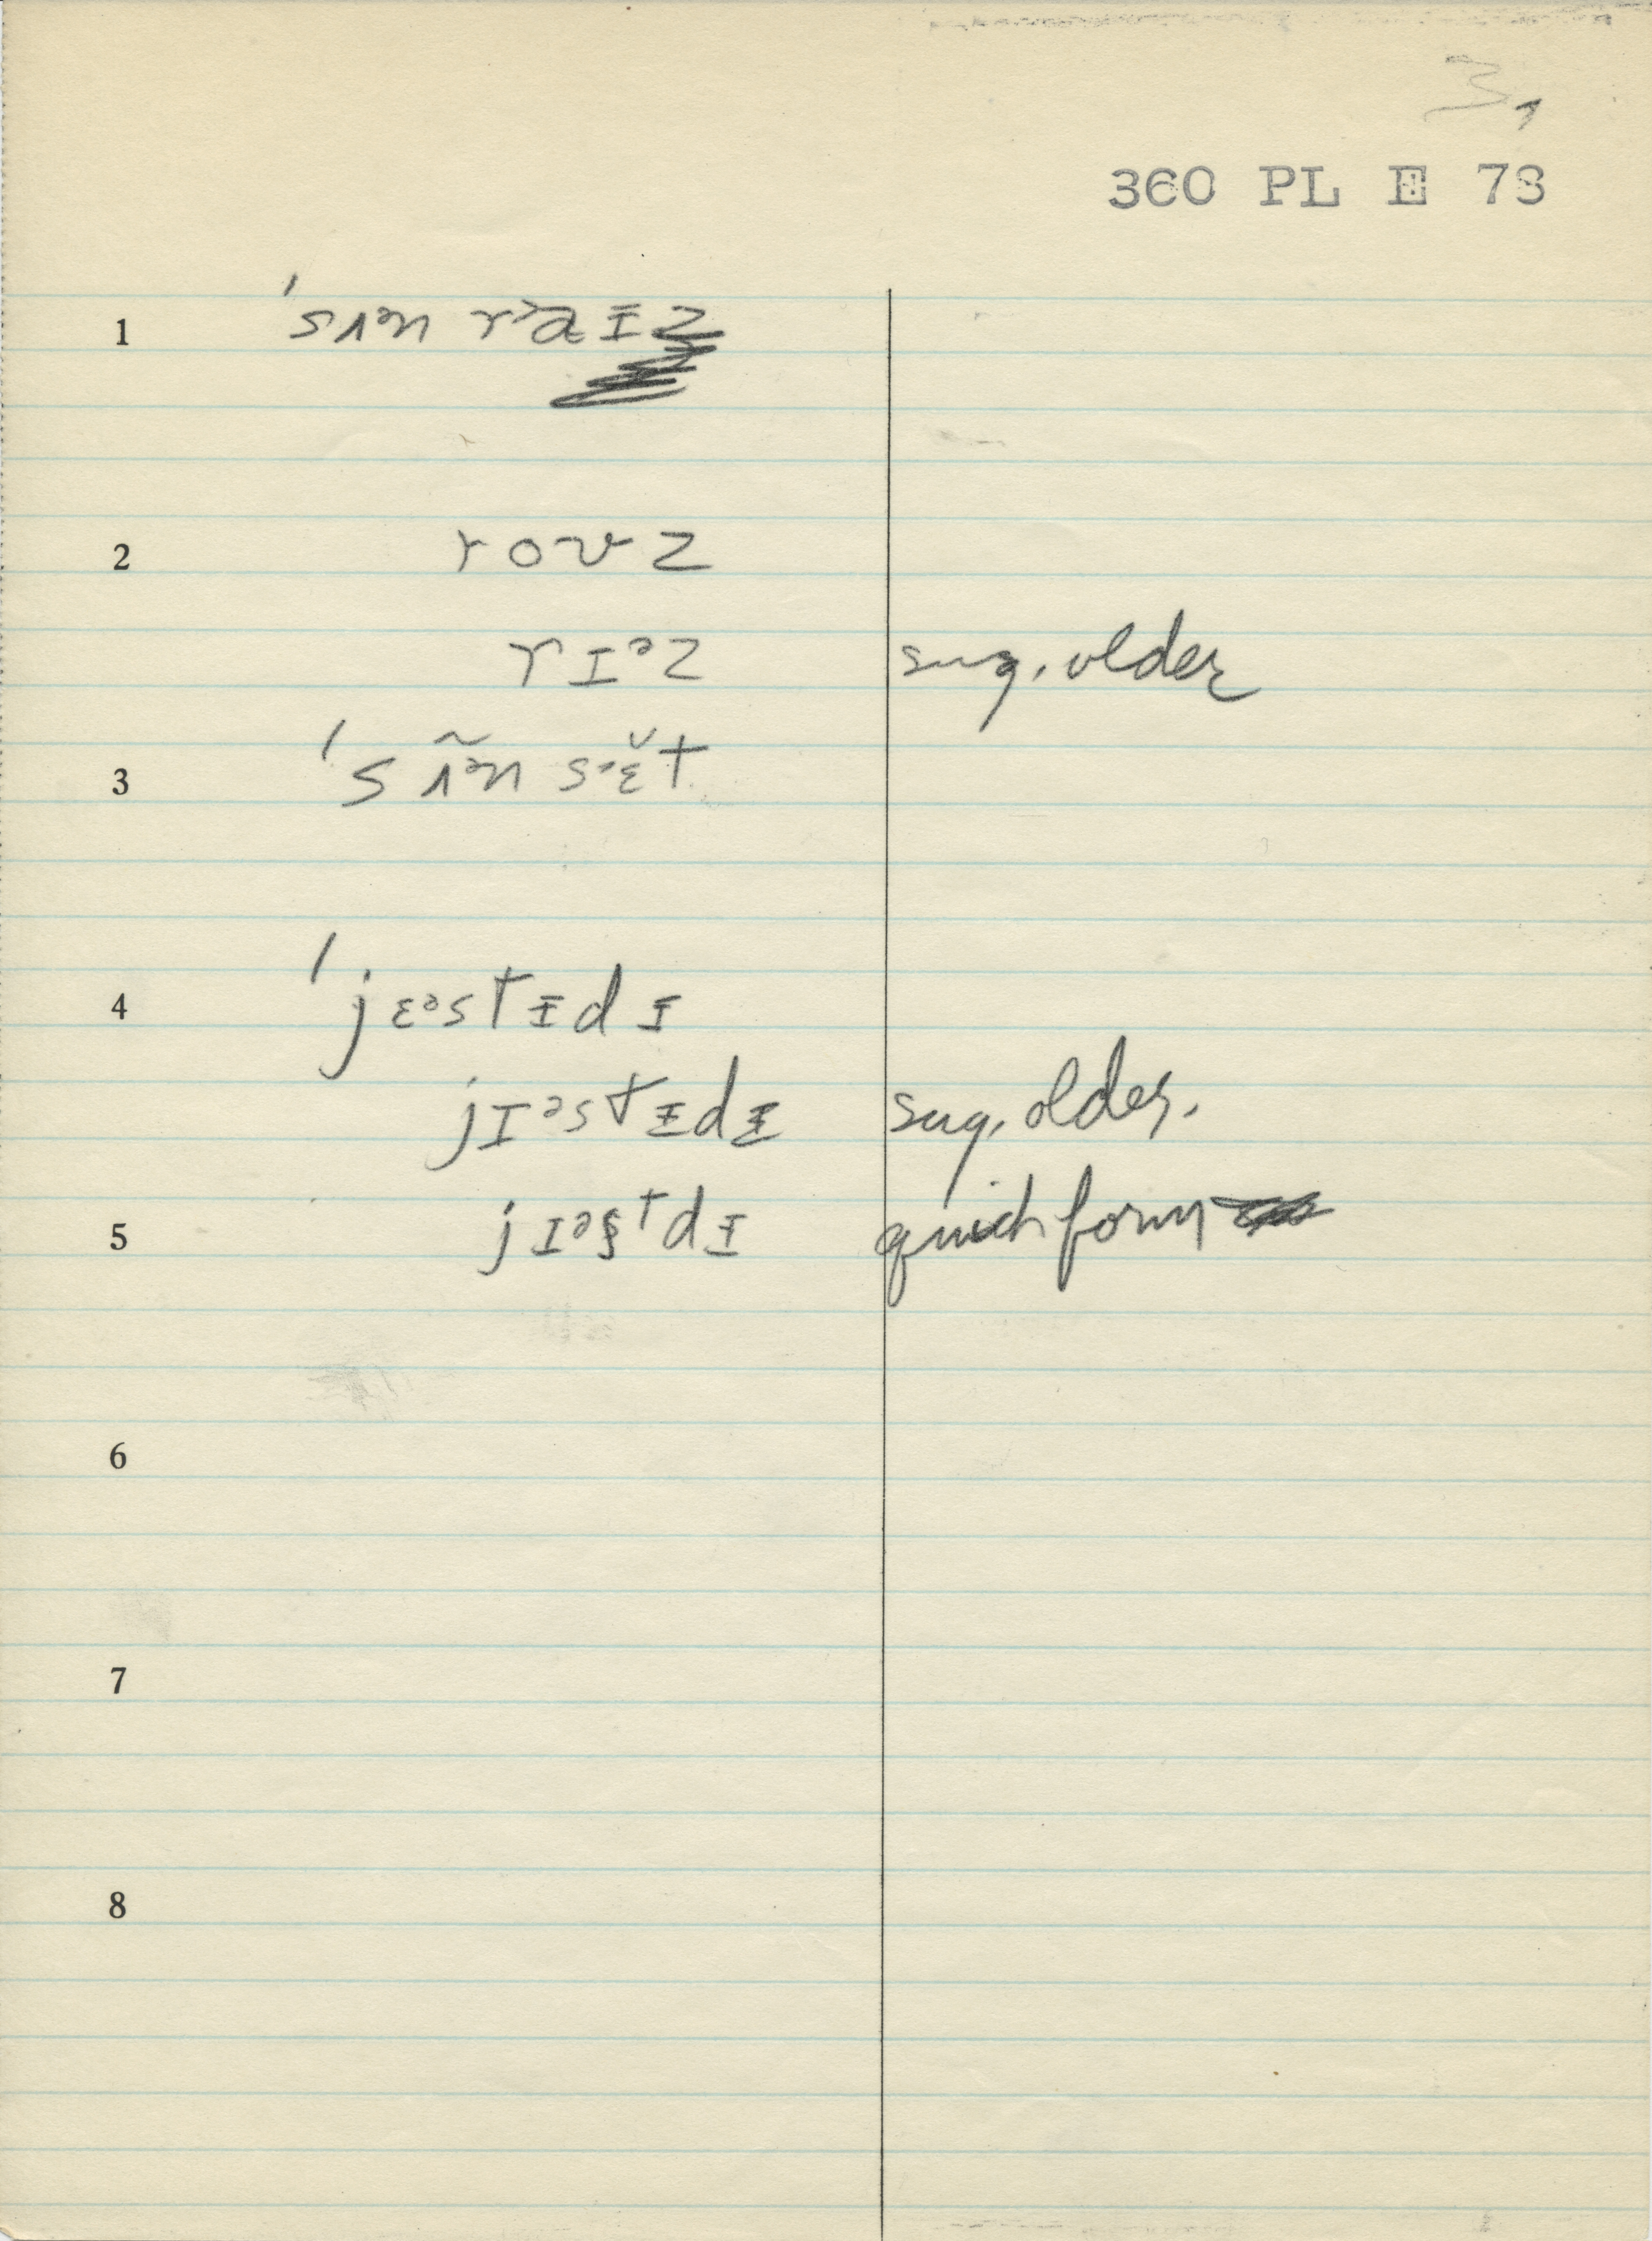 3,
360 PL E 78
1 ˈsʌᵊn rᵊaɪz
2 rovz
rɪᵊz sug. older
3 ˈsʌ̃ᵊn sᵊɛ̆t
4 ˈjɛᵊstɪdɪ
jɪᵊstɪdɪ sug. older.
5 jɪᵊstdɪ quick form
6
7
8